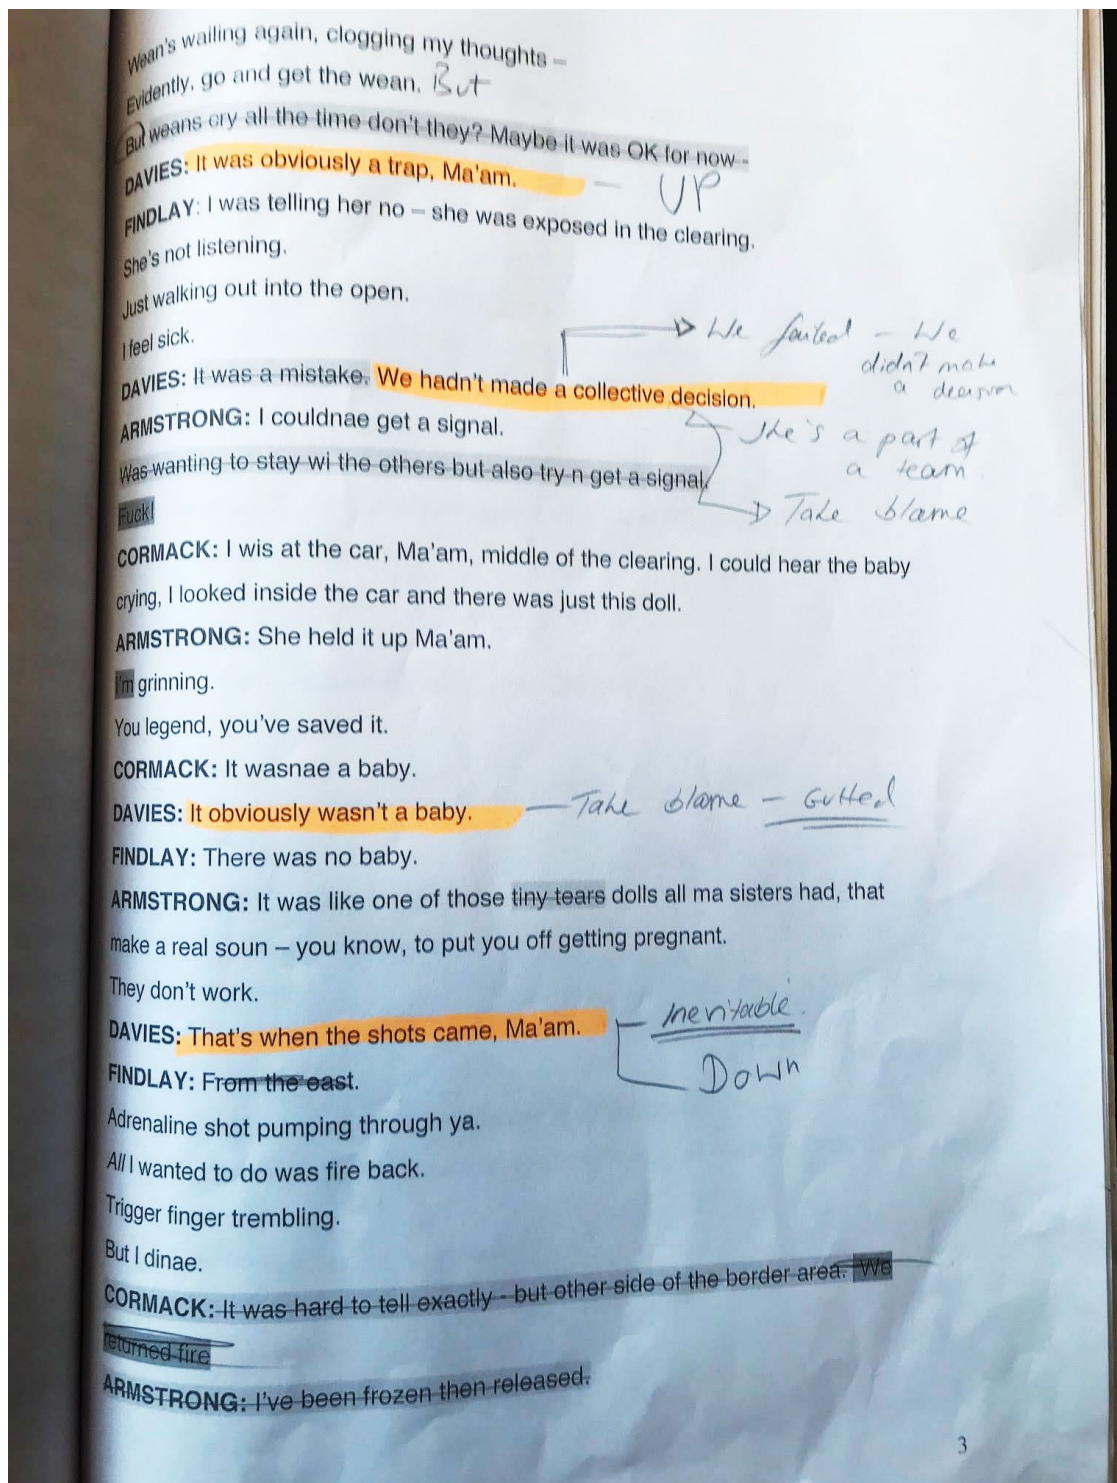 Wean's wailing again, clogging my thoughts –
Evidently, go and get the wean. But
But weans cry all the time don't they? Maybe it was OK for now -
DAVIES: It was obviously a trap, Ma'am. — UP
FINDLAY: I was telling her no – she was exposed in the clearing.
She's not listening.
Just walking out into the open.
I feel sick.
We failed - We
didn't make
a decision
DAVIES: It was a mistake. We hadn't made a collective decision.
ARMSTRONG: I couldnae get a signal.
She's a part of
a team.
Was wanting to stay wi the others but also try n get a signal.
Take blame
Fuck!
CORMACK: I wis at the car, Ma'am, middle of the clearing. I could hear the baby
crying, I looked inside the car and there was just this doll.
ARMSTRONG: She held it up Ma'am.
I'm grinning.
You legend, you've saved it.
CORMACK: It wasnae a baby.
DAVIES: It obviously wasn't a baby. — Take blame - Gutted
FINDLAY: There was no baby.
ARMSTRONG: It was like one of those tiny tears dolls all ma sisters had, that
make a real soun – you know, to put you off getting pregnant.
They don't work.
DAVIES: That's when the shots came, Ma'am. Inevitable.
Down
FINDLAY: From the east.
Adrenaline shot pumping through ya.
All I wanted to do was fire back.
Trigger finger trembling.
But I dinae.
CORMACK: It was hard to tell exactly - but other side of the border area. We
returned fire
ARMSTRONG: I've been frozen then released.
3